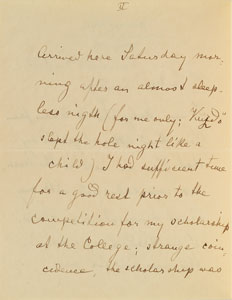 II
arrived here Saturday mor-
ning after an almost sleep-
less nigth (for me only;
slept the hole night like a
child) I had sufficient time
for a good rest prior to the
competition for my scholarship
at the College; strange coin-
cidence, the scholarship was